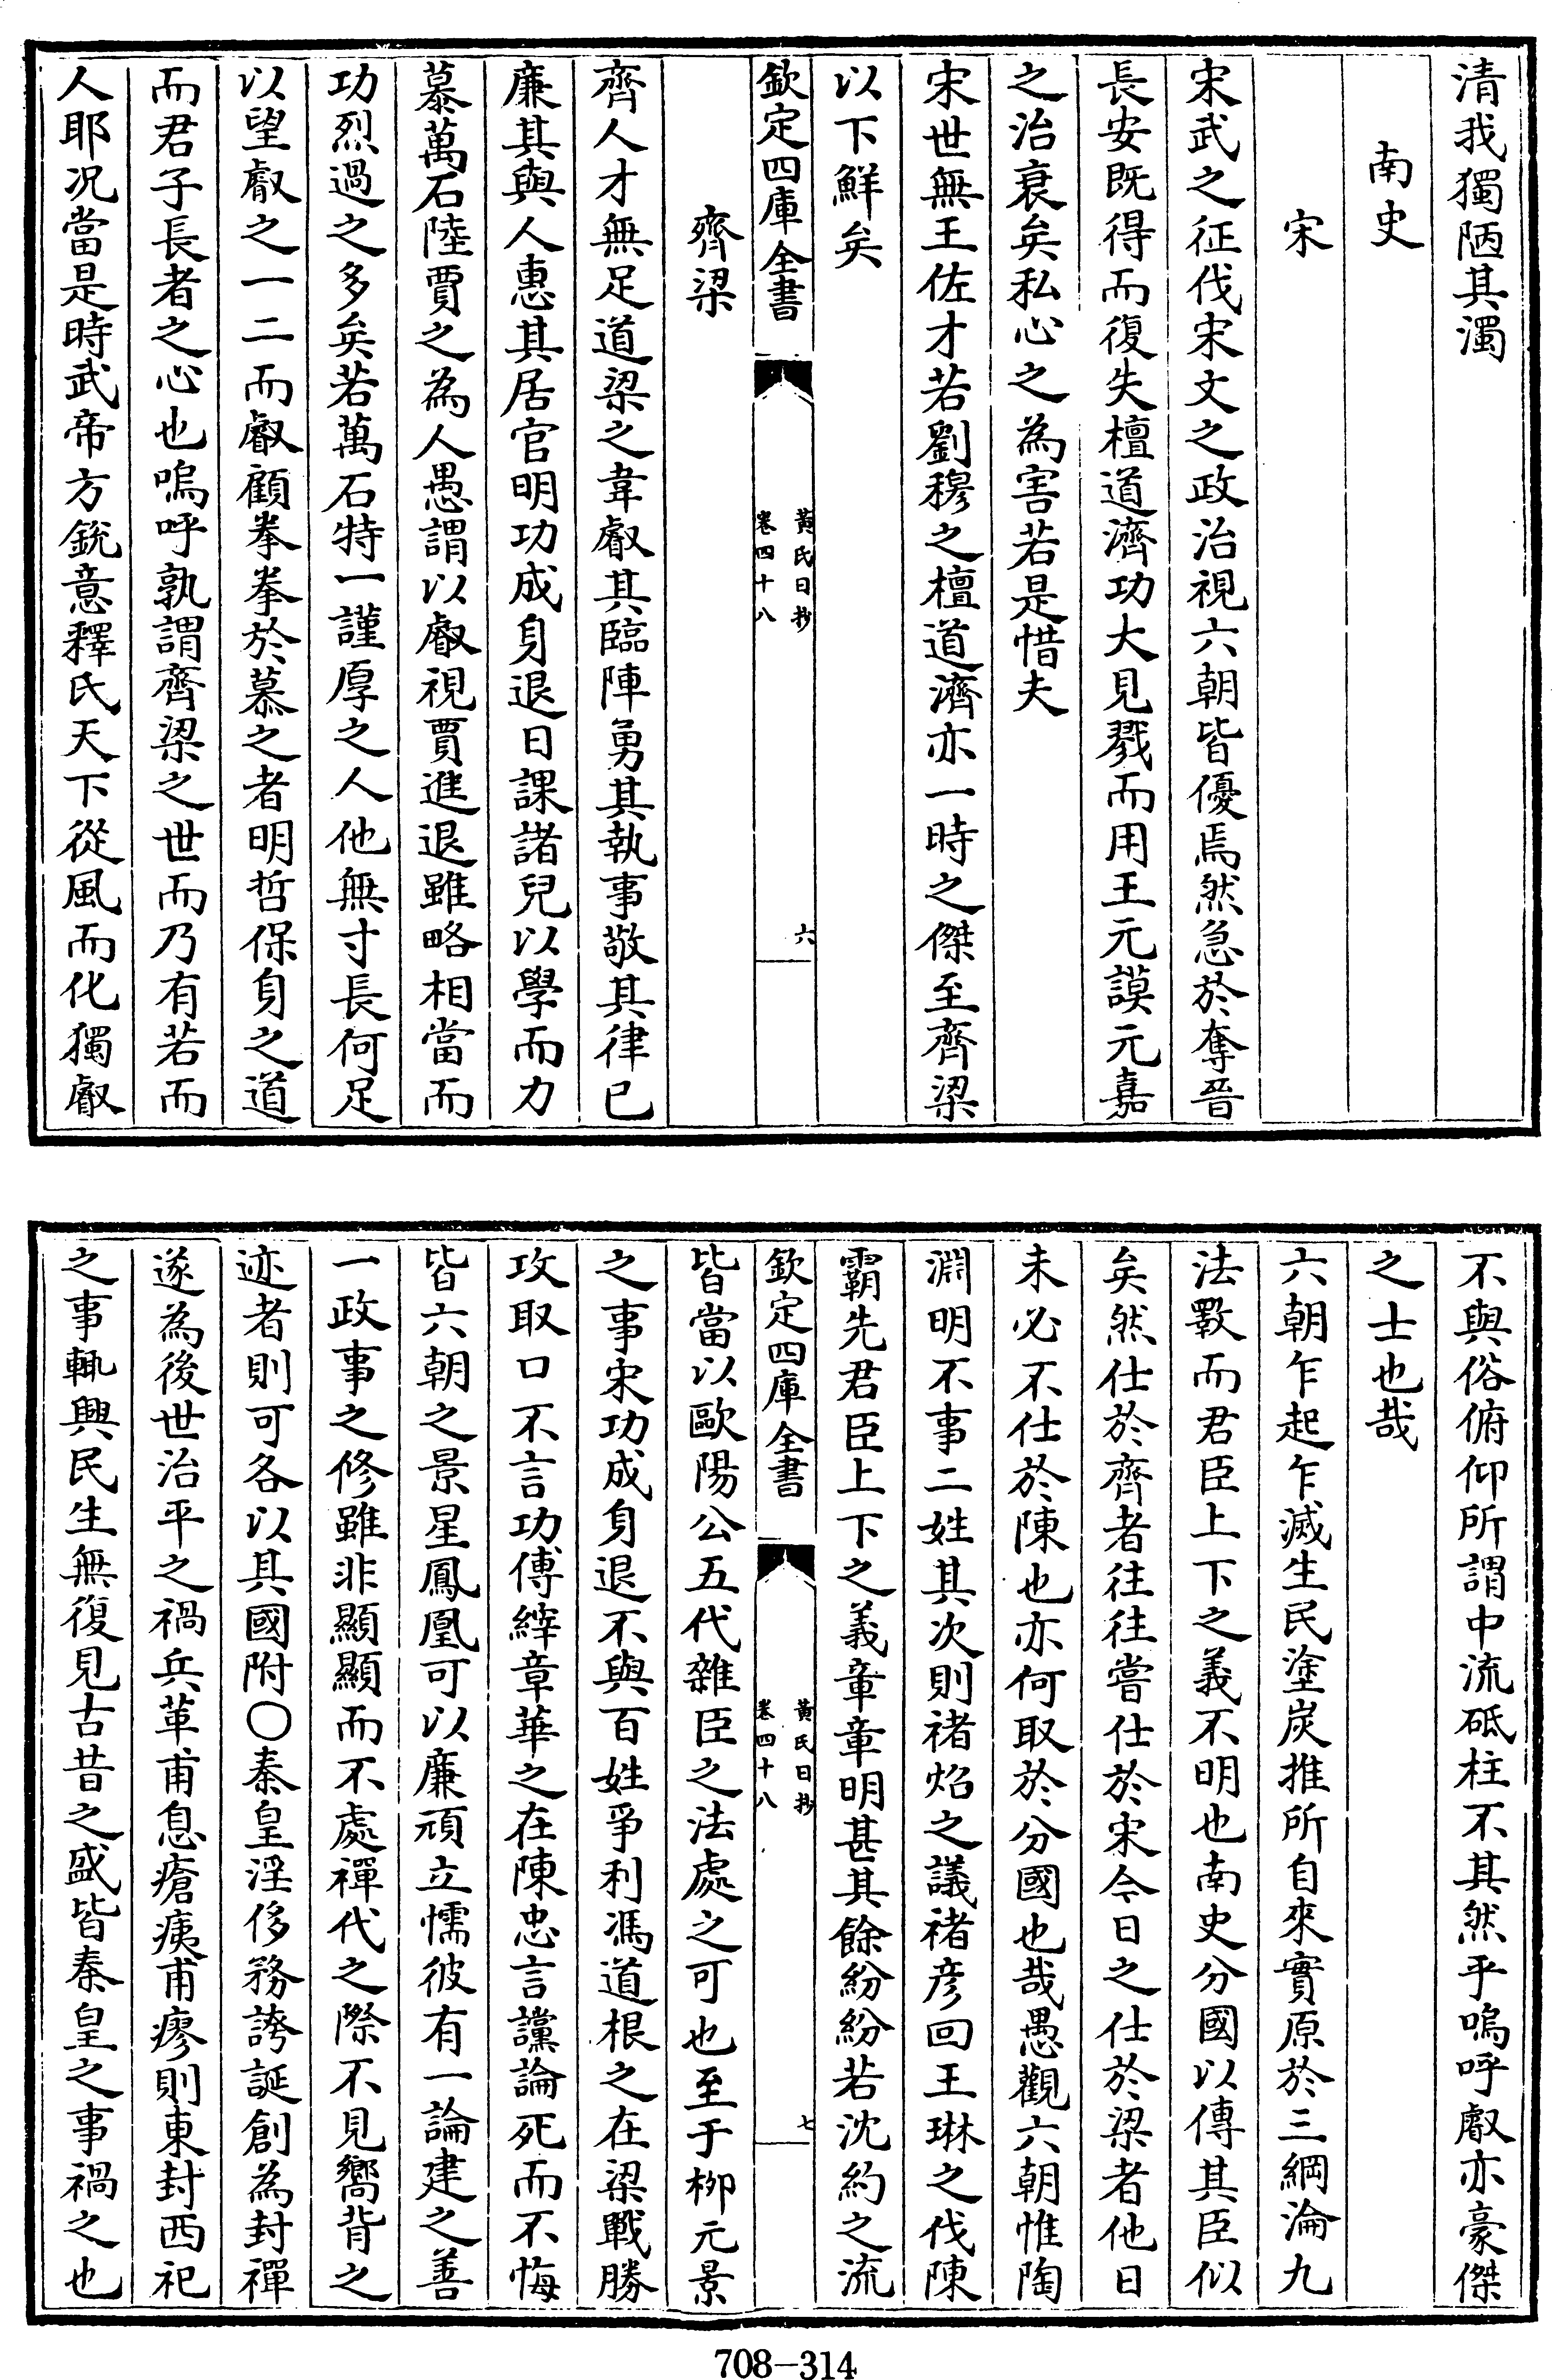 清我獨陋其濁
南史
宋
宋武之征伐宋文之政治視六朝皆優焉然急於奪晉
長安既得而復失檀道濟功大見戮而用王元謨元嘉
之治衰矣私心之為害若是惜夫
宋世無王佐才若劉穆之檀道濟亦一時之傑至齊梁
以下鮮矣
欽定四庫全書
黃氏日抄
卷四十八
六
齊梁
齊人才無足道梁之韋叡其臨陣勇其執事敬其律已
廉其與人惠其居官明功成身退日課諸兒以學而力
慕萬石陸賈之為人愚謂以叡視賈進退雖略相當而
功烈過之多矣若萬石特一謹厚之人他無寸長何足
以望叡之一二而叡顧拳拳於慕之者明哲保身之道
而君子長者之心也嗚呼孰謂齊梁之世而乃有若而
人耶况當是時武帝方銳意釋氏天下從風而化獨叡
不與俗俯仰所謂中流砥柱不其然乎嗚呼叡亦豪傑
之士也哉
六朝乍起乍滅生民塗炭推所自來實原於三綱淪九
法斁而君臣上下之義不明也南史分國以傳其臣似
矣然仕於齊者往往嘗仕於宋今日之仕於梁者他日
未必不仕於陳也亦何取於分國也哉愚觀六朝惟陶
淵明不事二姓其次則褚炤之議褚彦回王琳之伐陳
霸先君臣上下之義章章明甚其餘紛紛若沈約之流
欽定四庫全書
黃氏日抄
卷四十八
七
皆當以歐陽公五代雜臣之法處之可也至于柳元景
之事宋功成身退不與百姓爭利馮道根之在梁戰勝
攻取口不言功傅縡章華之在陳忠言讜論死而不悔
皆六朝之景星鳳凰可以廉頑立懦彼有一論建之善
一政事之修雖非顯顯而不處禪代之際不見嚮背之
迹者則可各以其國附〇秦皇淫侈務誇誕創為封禪
遂為後世治平之禍兵革甫息瘡痍甫瘳則東封西祀
之事輒興民生無復見古昔之盛皆秦皇之事禍之也
708-314